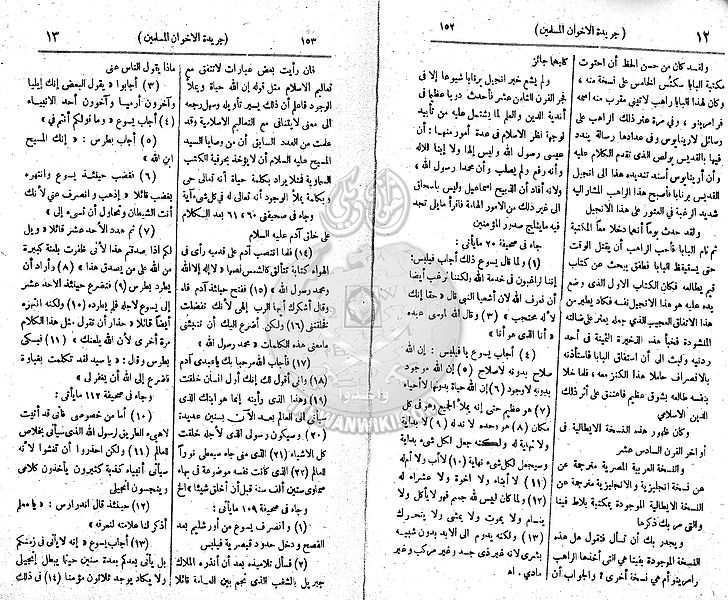 ١٢
( جريدة الاخوان المسلمين )
١٥٢
ولقد كان من حسن الحظ أن احتوت
مكتبة البابا سكتس الخامس على نسخة منه ،
وكان لهذا البابا راهب لاتيني مقرب منه اسمه
فرامرينو ، وفي مرة عثر ذلك الراهب على
رسائل لارينايوس وفي عدادها رسالة يندد
فيها بالقديس بولص الذي تقدم الكلام عليه
وأن أرينانوس أسند تنديده هذا إلى انجيل
القديس برنابا فأصبح هذا الراهب المشار اليه
شديد الرغبة في العثور على هذا الانجيل
ولقد حدث يوماً أنهما دخلا معاً المكتبة
ثم نام البابا فأحب الراهب أن يقتل الوقت
حتى يستيقظ البابا فطفق يبحث عن كتاب
قيم يطالعه فكان الكتاب الاول الذي وضع
يده عليه هو هذا الانجيل نفسه فكاد يطير من
هذا الاتفاق العجيب الذي جعله يعثر على ضالته
المنشودة فخبأ هذه الذخيرة الثمينة في أحد
ردنيه ولبث الى أن استفاق البابا فاستأذنه
بالانصراف حاملا هذا الكنز معه ، فلما خلا
بنفسه طالعه بشوق عظيم فاعتنق على أثر ذلك
الدين الاسلامي
وكان ظهور هذه النسخة الايطالية في
أواخر القرن السادس عشر
والنسخة العربية المصرية مترجمة عن
عن نسخة انجليزية والانجليزية مترجمة عن
النسخة الايطالية الموجودة بمكتبة بلاط فينا
والتي مر بك ذكرها
ويجدر بك أن تسأل فتقول هل هذه
النسخة الموجودة بفينا هي التي أخذها الراهب
رامرينو أم هي نسخة أخرى ؟ والجواب أن
كليهما جائز
ولم يشع خبر انجيل برنابا شيوعا إلا في
فجر القرن الثامن عشر فأحدث دويا عظيما في
أندية الدين والعلم لما يشتمل عليه من تأييد
لوجهة نظر الاسلام في عدة أمور منها : أن
عيسى رسول الله وليس إلها ولا إبنا للاله
وأنه رفع ولم يصلب وأن محمداً رسول الله ،
ولانه أفاد أن الذبيح اسماعيل وليس باسحاق
الى غير ذلك من الامور الهامة فاقرأ مايلي تجد
فيه مايثلج صدور المؤمنين
جاء في صحيفة ٢٠ مايأتى :
(١) ولما قال يسوع ذلك أجاب فيلبس :
إننا لراغبون في خدمة الله ولكننا نرغب أيضاً
أن نعرف الله لأن أشعيا النبي قال « حقا إنك
لأله محتجب » (٣) وقال الله لموسى عبده
« أنا الذي هو أنا »
(٤) أجاب يسوع يا فيلبس : إن الله
صلاح بدونه لاصلاح (٥) إن الله موجود
بدونه لاوجود (٦) إن الله حياة بدونها لاأحياء
(٧) هو عظيم حتى إنه يملأ الجميع وهو في كل
مكان (٨) هو وحده لا ند له (٩) لا بداية
ولا نهاية له ولكنه جعل لكل شىء بداية
وسيجعل لكل شىء نهاية (١٠) لاأب ولا أم له
(١١) لا أبناء ولا اخوة ولا عشراء له
(١٢) ولما كان ليس لله جسم فهو لايأكل ولا
ينام ولا يموت ولا يمشى ولا يتحرك
(١٣) ولكنه يدوم الى الابد بدون شبيه
بشرى لانه غير ذى جسد وغير مركب وغير
مادي . اه
١٥٣
( جريدة الاخوان المسلمين )
١٣
فان رأيت بعض عبارات لاتتفق مع
تعاليم الاسلام مثل قوله إن الله حياة ويملأ
الوجود فاعلم أن ذلك يسير تأويله وسهل رجعه
الى معنى لايتنافى مع التعاليم الاسلامية وقد
علمت من العدد السابق أن من وصايا السيد
المسيح عليه السلام أن لايؤخذ بحرفية الكتب
السماوية فمثلا يراد بكلمة حياة أنه تعالى حي
وبكلمة يملأ الوجود أنه تعالى له في كل شيء آية
وجاء في صحيفتي ٦٠ ، ٦١ بعد الكلام
على خلق آدم عليه السلام
(١٤) فلما انتصب آدم على قدميه رأى في
الهواء كتابة تتألق كالشمس نصها « لا إله إلا الله
ومحمد رسول الله » (١٥) ففتح حينئذ آدم فاه
وقال أشكرك أيها الرب إلهي لأنك تفضلت
فخلقتني (١٦) ولكن أضرع اليك أن تنبئني
مامعنى هذه الكلمات « محمد رسول الله »
(١٧) فأجاب الله مرحبا بك ياعبدي آدم
(١٨) وانى أقول لك إنك أول انسان خلقت
(١٩) وهذا الذي رأيته إنما هو ابنك الذي
سيأتى الى العالم بعد الآن بسنين عديدة
(٢٠) وسيكون رسولى الذي لأجله خلقت
كل الاشياء (٢١) الذي متى جاء سيعطى نوراً
للعالم (٢٢) الذي كانت نفسه موضوعة في بهاء
سماوى ستين ألف سنة قبل أن أخلق شيئا » الخ
وجاء في صحيفة ١٠٩ مايأتى :
(١) وانصرف يسوع من أورشليم بعد
الفصح ودخل حدود قيصرية فيلبس
(٢) فسأل تلاميذه بعد أن أنذره الملاك
جبريل بالشغب الذي نجم بين العامة قائلا
ماذا يقول الناس عنى
(٣) أجابوا « يقول البعض إنك إيليا
وآخرون أرميا وآخرون أحد الانبياء
(٤) أجاب يسوع « وما قولكم أنتم في »
(٥) أجاب بطرس : « إنك المسيح
ابن الله »
(٦) فغضب حينئذ يسوع وانتهره
بغضب قائلا « إذهب وانصرف عني لأنك
أنت الشيطان وتحاول أن تسىء إلى »
(٧) ثم هدد الأحد عشر قائلا « ويل
لكم اذا صدقتم هذا لأني ظفرت بلعنة كبيرة
من الله على من يصدق هذا » (٨) وأراد أن
يطرد بطرس (٩) فتضرع حينئذ الاحد عشر
إلى يسوع لاجله فلم يطرده (١٠) ولكنه انتهزه
أيضاً قائلا « حذار أن تقول مثل هذا الكلام
مرة أخرى لأن الله يلعنك » (١١) فبكى
بطرس وقال : « يا سيد لقد تكلمت بغباوة
فاضرع إلى الله أن يغفر لى »
وجاء في صحيفة ١٤٢ ماياتى :
(١٠) أما من خصوصى فأنى قد أتيت
لاهيىء الطريق لرسول الله الذي سيأتى بخلاص
للعالم (١١) ولكن احذروا أن تغشوا لأنه
سيأتى أنبياء كذبة كثيرون يأخذون كلامى
وينجسون انجيلى
(١٢) حينئذ قال أندراوس : « يا معلم
أذكر لنا علامة لنعرفه »
(١٣) أجاب يسوع « إنه لايأتى في زمنكم
بل يأتى بعدكم بعدة سنين حينما يبطل إنجيلى
ولا يكاد يوجد ثلاثون مؤمنا (١٤) في ذلك